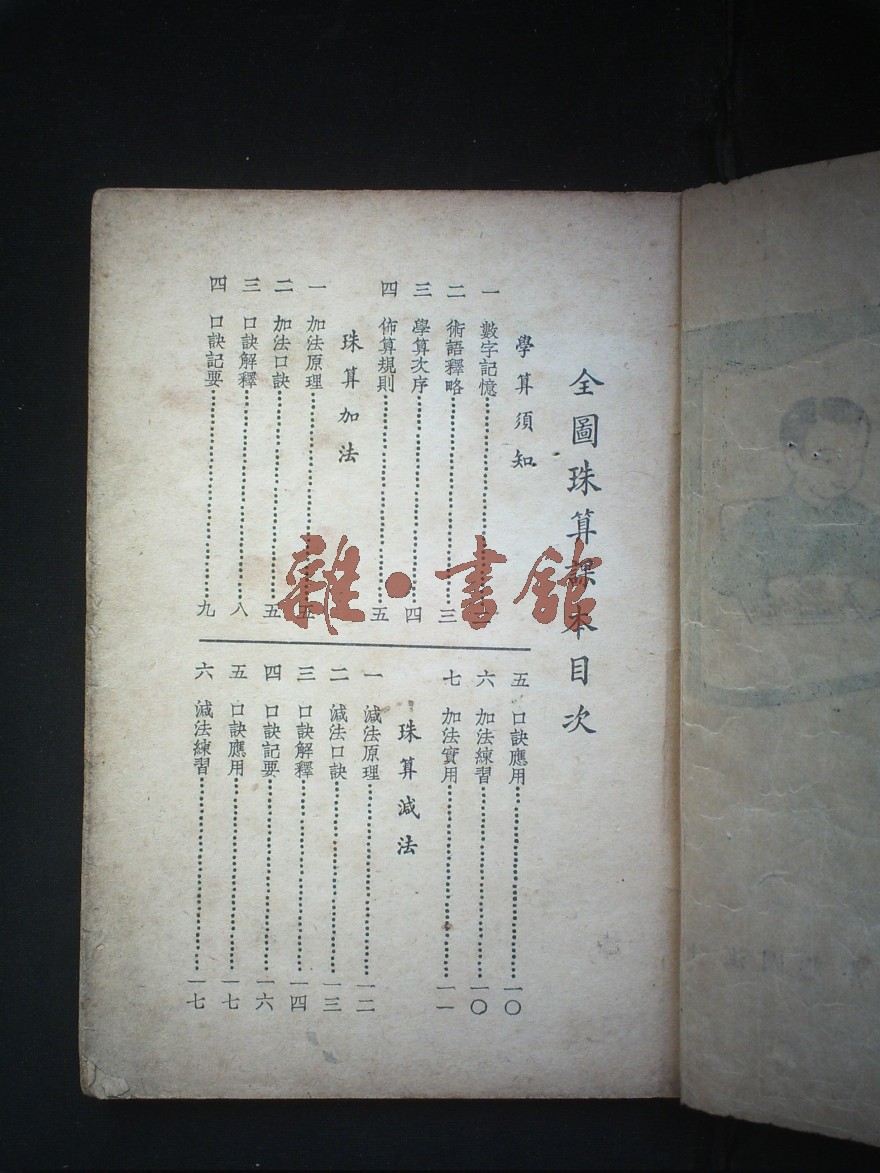 全圖珠算課本目次
學算須知
一 數字記憶
二 術語釋略 三
三 學算次序 四
四 佈算規則 五
珠算加法
一 加法原理 五
二 加法口訣 五
三 口訣解釋 八
四 口訣記要 九
五 口訣應用 一〇
六 加法練習 一〇
七 加法實用 一一
珠算減法
一 減法原理 一二
二 減法口訣 一三
三 口訣解釋 一四
四 口訣記要 一六
五 口訣應用 一七
六 減法練習 一七
雜·書館